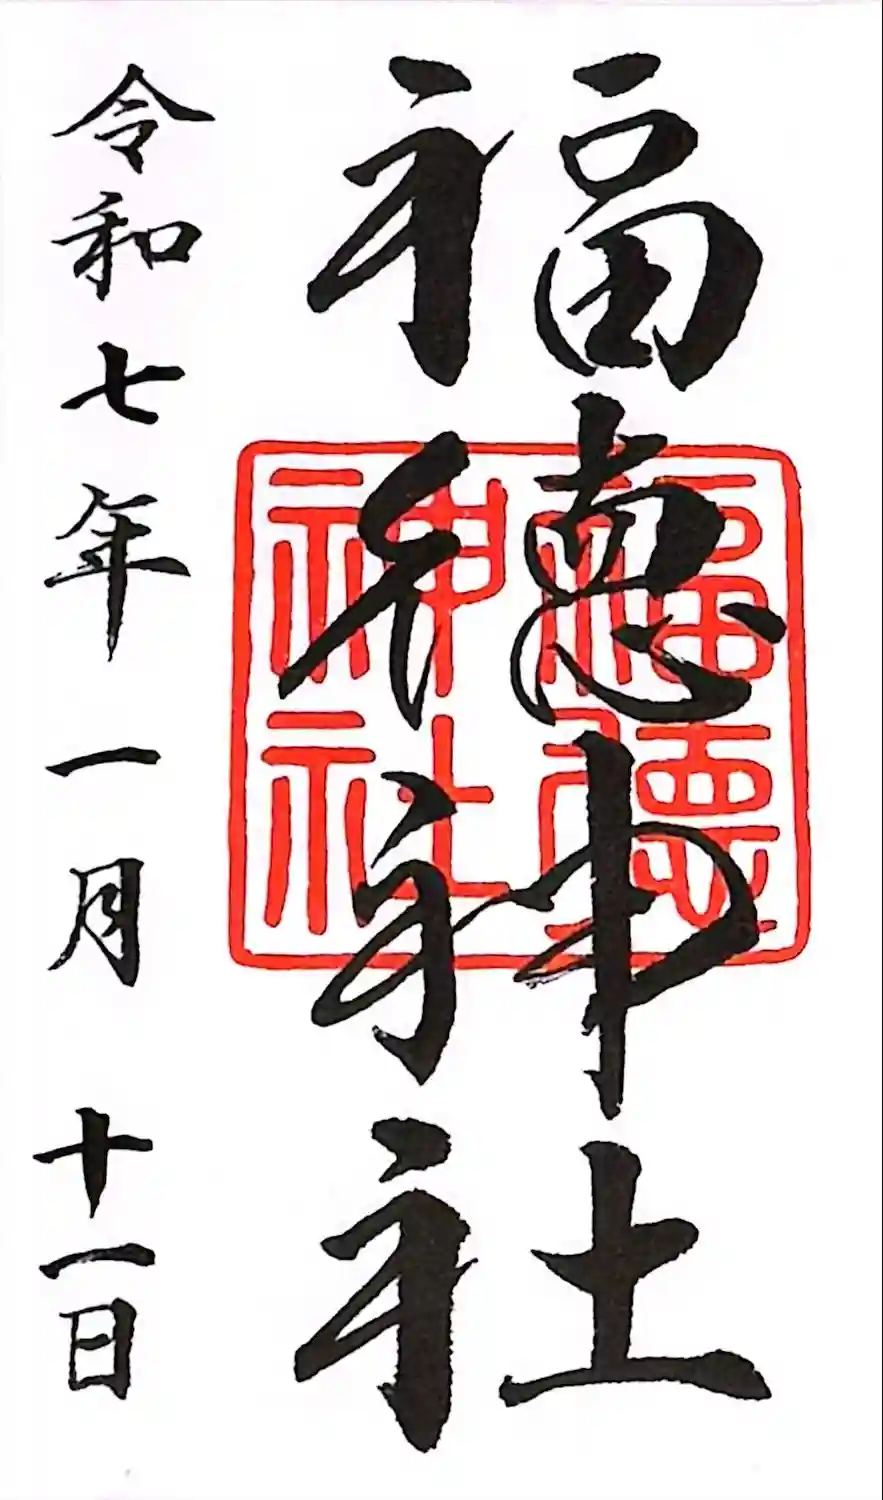 福徳神社
福徳神社
令和七年一月十一日